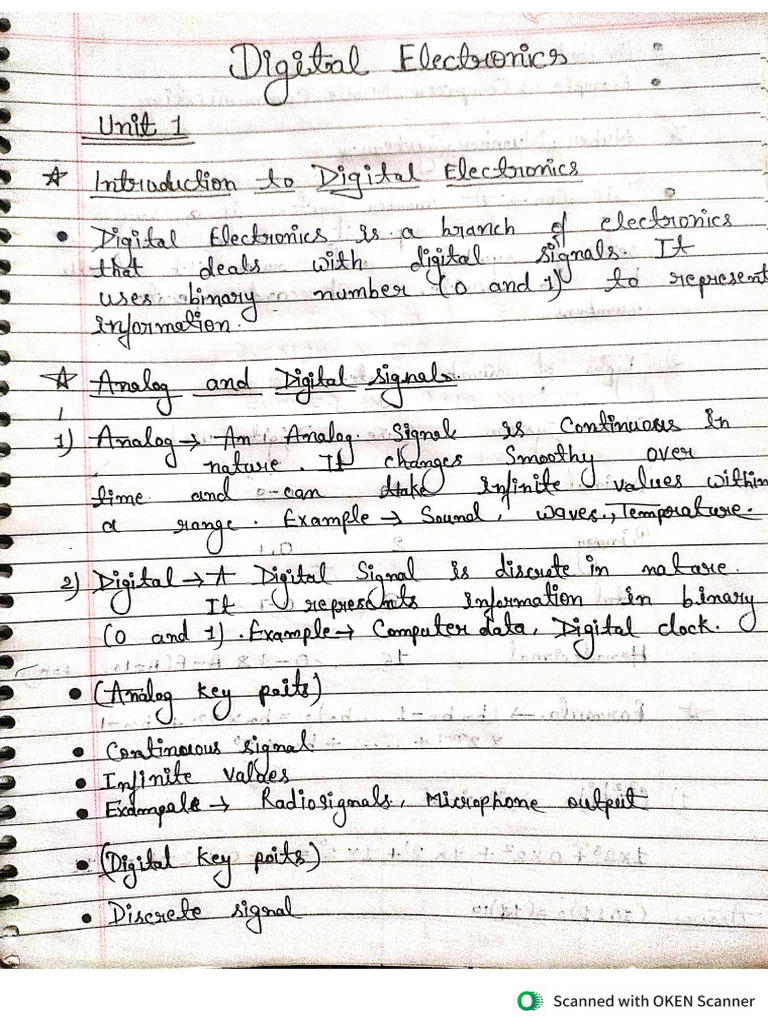 Digital Electronics
Unit 1
☆ Introduction to Digital Electronics
• Digital Electronics is a branch of electronics
that deals with digital signals. It
uses binary number (0 and 1) to represent
information.
☆ Analog and Digital signals.
1) Analog → An Analog Signal is Continuous in
nature. It changes Smoothy over
time and can take infinite values within
a range. Example → Sound, waves, Temperature.
2) Digital → A Digital Signal is discrete in nature.
It represents information in binary
(0 and 1). Example → Computer data, Digital clock.
• (Analog key poits)
• Continuous signal
• Infinite values
• Example → Radiosignals, Microphone output
• (Digital key poits)
• Discrete signal
Scanned with OKEN Scanner